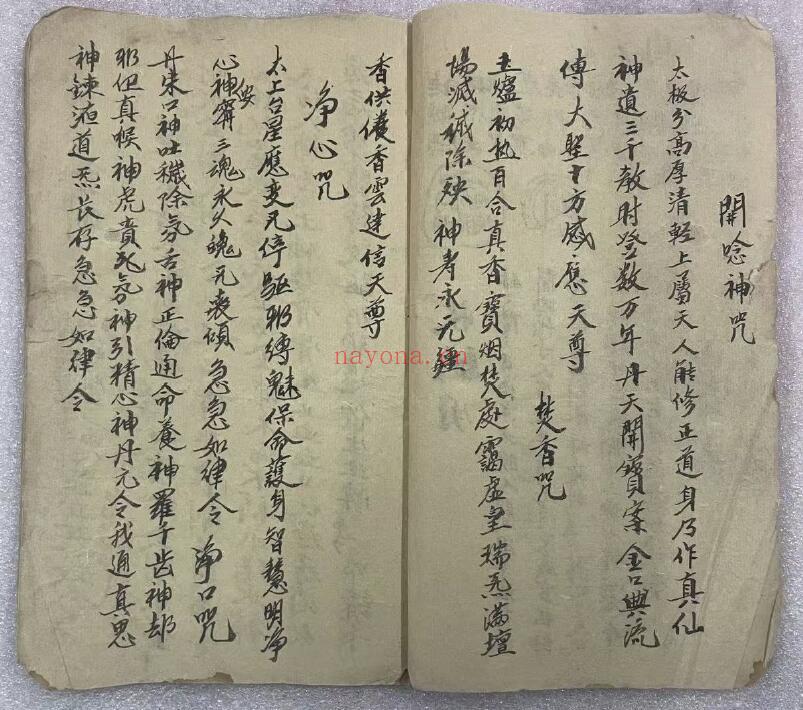 開唸神咒
太極分高厚清輕上屬天人能修正道身乃作真仙
神遺三千教时登数万年丹天開寶案金口興流
傳大聖十方感應天尊
焚香咒
玉爐初热百合真香寳烟焚處靄虚皇瑞炁滿壇
塲滅穢除殃神考永无疆
香供養香雲達信天尊
净心咒
太上台星應变无停驅邪縛魅保命護身智慧明净
心神安寜三魂永久魄无丧傾急急如律令净口咒
丹朱口神吐穢除氛舌神正倫通命養神羅千齿神却
邪但真喉神虎賁炁氛神引精心神丹元令我通真思
神鍊液道炁长存急急如律令
nayona.cn